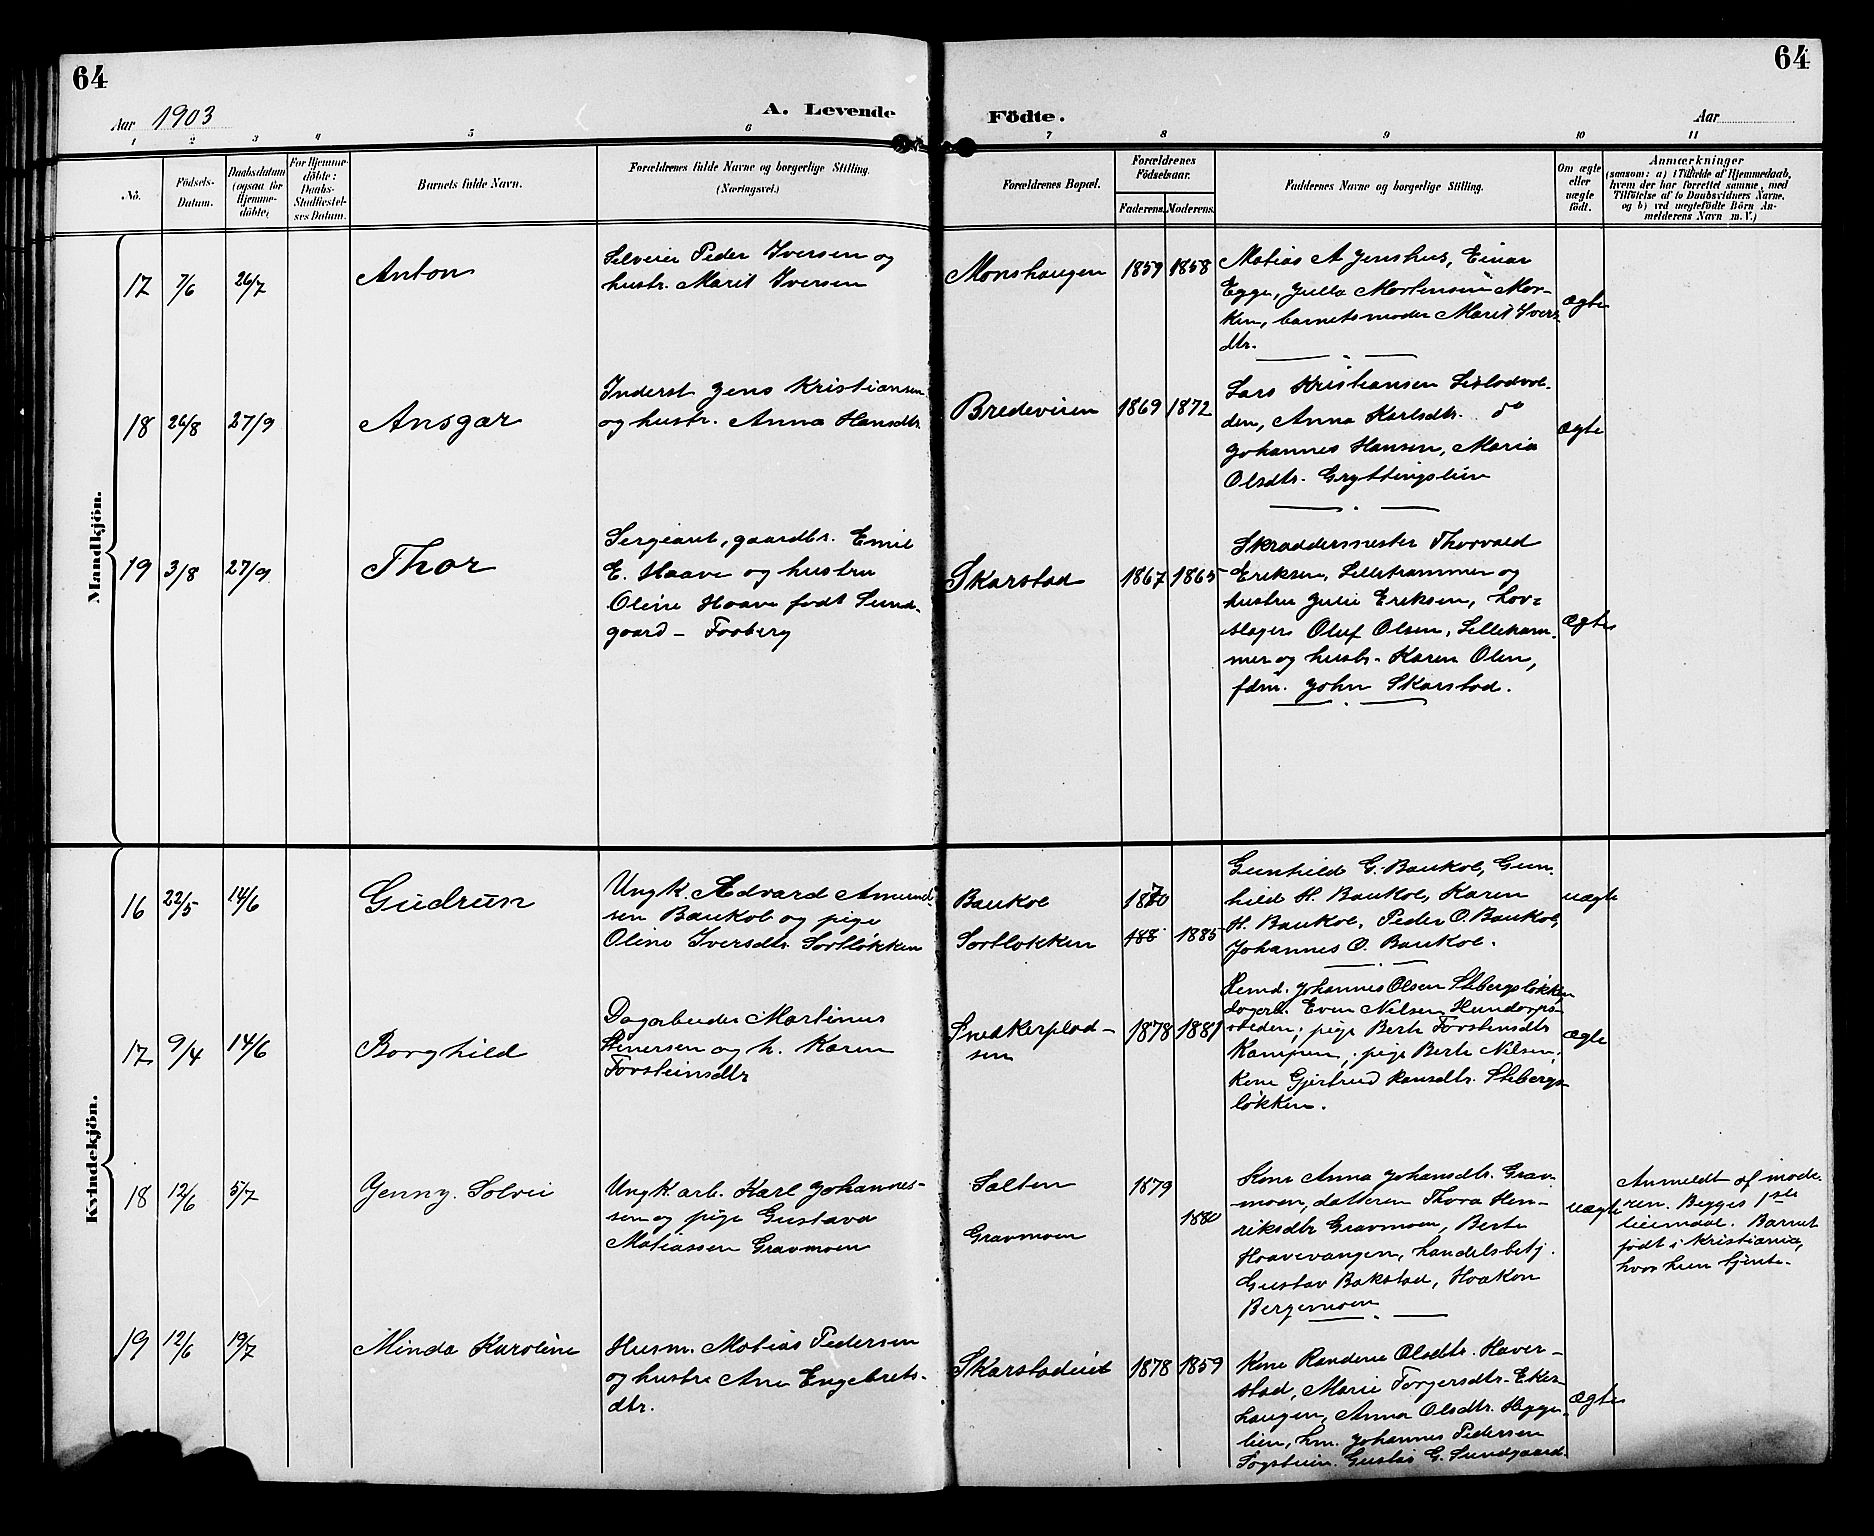 64
64
Aar 1903
A. Levende Födte.
Aar
1 2 3 4 5 6 7 8 9 10 11
No.
Födsels-Datum.
Daabsdatum (ogsaa for Hjemmedöbte)
For Hjemmedöbte: Daabs-Stadfæstelses Datum.
Barnets fulde Navn.
Forældrenes fulde Navne og borgerlige Stilling. (Næringsvei.)
Forældrenes Bopæl.
Forældrenes Födselsaar.
Faderens. Moderens.
Faddernes Navne og borgerlige Stilling.
Om ægte eller uægte födt.
Anmærkninger
(saasom: a) i Tilfælde af Hjemmedaab, hvem der har forrettet samme, med Tilföielse af to Daabsvidners Navne, og b) ved uægtefödte Börn Anmelderens Navn m. V.)
Mandkjön.
17 7/6 26/7
Anton
Selveier Peder Iversen og
hustr. Marit Iversen
Monshaugen
1859 1858
Matias A Jenshus, Einar
Egge, Julla Mortensen Mor-
ken, barnets moder Marit Ivers
dtr.
ægte
18 26/8 27/9
Ansgar
Inderst Jens Kristiansen
og hustr. Anna Hansdtr.
Bredeviren
1869 1872
Lars Kristiansen
den, Anna Karlsdtr. do
Johannes Hansen, Maria
Olsdtr. Gryttingslien
ægte
19 3/8 27/9
Thor
Sergeant, gaardbr. Emil
E. Haave og hustru
Oline Haave født Sund-
gaard - Foaberg
Skarstad
1867 1865
Skræddermester Thorvald
Eriksen, Lillehammer og
hustru Julie Eriksen, hov-
slager Oluf Olsen, Lilleham-
mer og hustr. Karen Olsen,
fdm. John Skarstad.
ægte
Kvindekjön.
16 22/5 14/6
Gudrun
Ungk. Edvard Amund-
sen Baukol og pige
Oline Iversdtr Sortløkken
Baukol
Sortløkken
1870
188
1885
Gunhild G. Baukol, Gun
hild H. Baukol, Karen
H. Baukol, Peder O. Baukol,
Johannes O. Baukol.
uægte
17 9/4 14/6
Borghild
Dagarbeider Martinus
Stenersen og h. Karen
Torsteinsdtr
Snedkerplad-
sen
1878 1881
Johannes Olsen Stebergsløkken
Even Nilsen Hundorps-
pige Berte Torsteinsdtr
Kampen, pige Berte Nilsen,
Kone Gjertrud Hansdtr. Stebergs-
løkken.
ægte
18 12/6 5/7
Jenny. Solvei
Ungk. arb. Karl Johannes-
sen og pige Gustava
Matiassen Gravmoen
Salten
Gravmoen
1879
1880
Kone Anna Johansdtr. Grav
moen, datteren Thora Hen-
riksdtr Gravmoen, Berte
Haavevangen, handelsbetj.
Gustav Bakstad, Haakon
Bergemoen
uægte
Anmeldt af mode-
ren. Begges 1ste
leiermaal. Barnet
født i Kristiania,
hvor hun tjente.
19 12/6 19/7
Minda Karoline
Husm. Matias Pedersen
og hustru Ane Engebrets-
dtr.
Skarstadeiet
1878 1859
Kone Randine Olsdtr. Haver-
stad, Marie Torgersdtr. Eker-
haugen, Anna Olsdtr. Hegge-
lien, hm. Johannes Pedersen
Gustav G. Sundgaard.
ægte